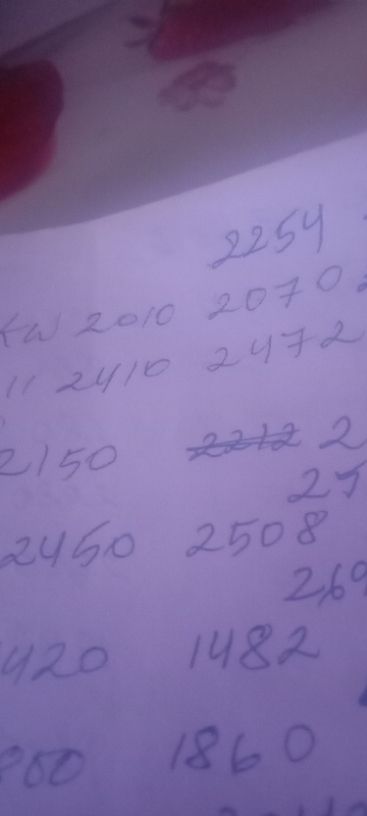 2254
KW 2010 2070
11 2410 2472
2150 2212 2
27
2450 2508
269
420 1482
1860